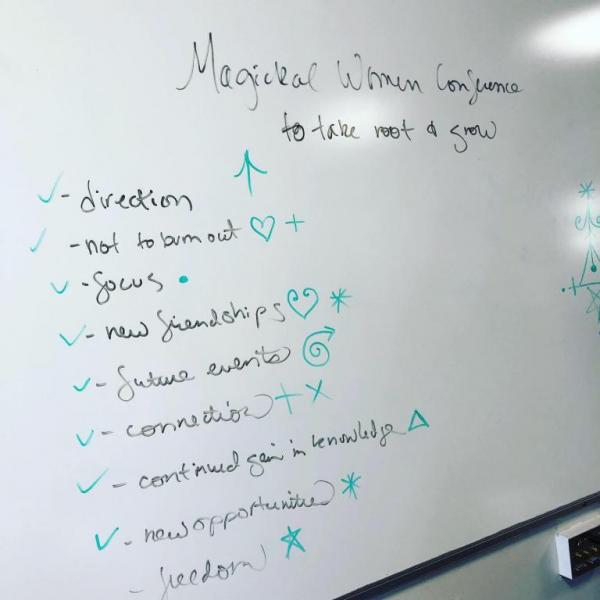 Magickal Women Conference
to take root & grow
- direction
- not to burn out
- focus
- new friendships
- future events
- connection
- continued gain in knowledge
- new opportunities
- freedom